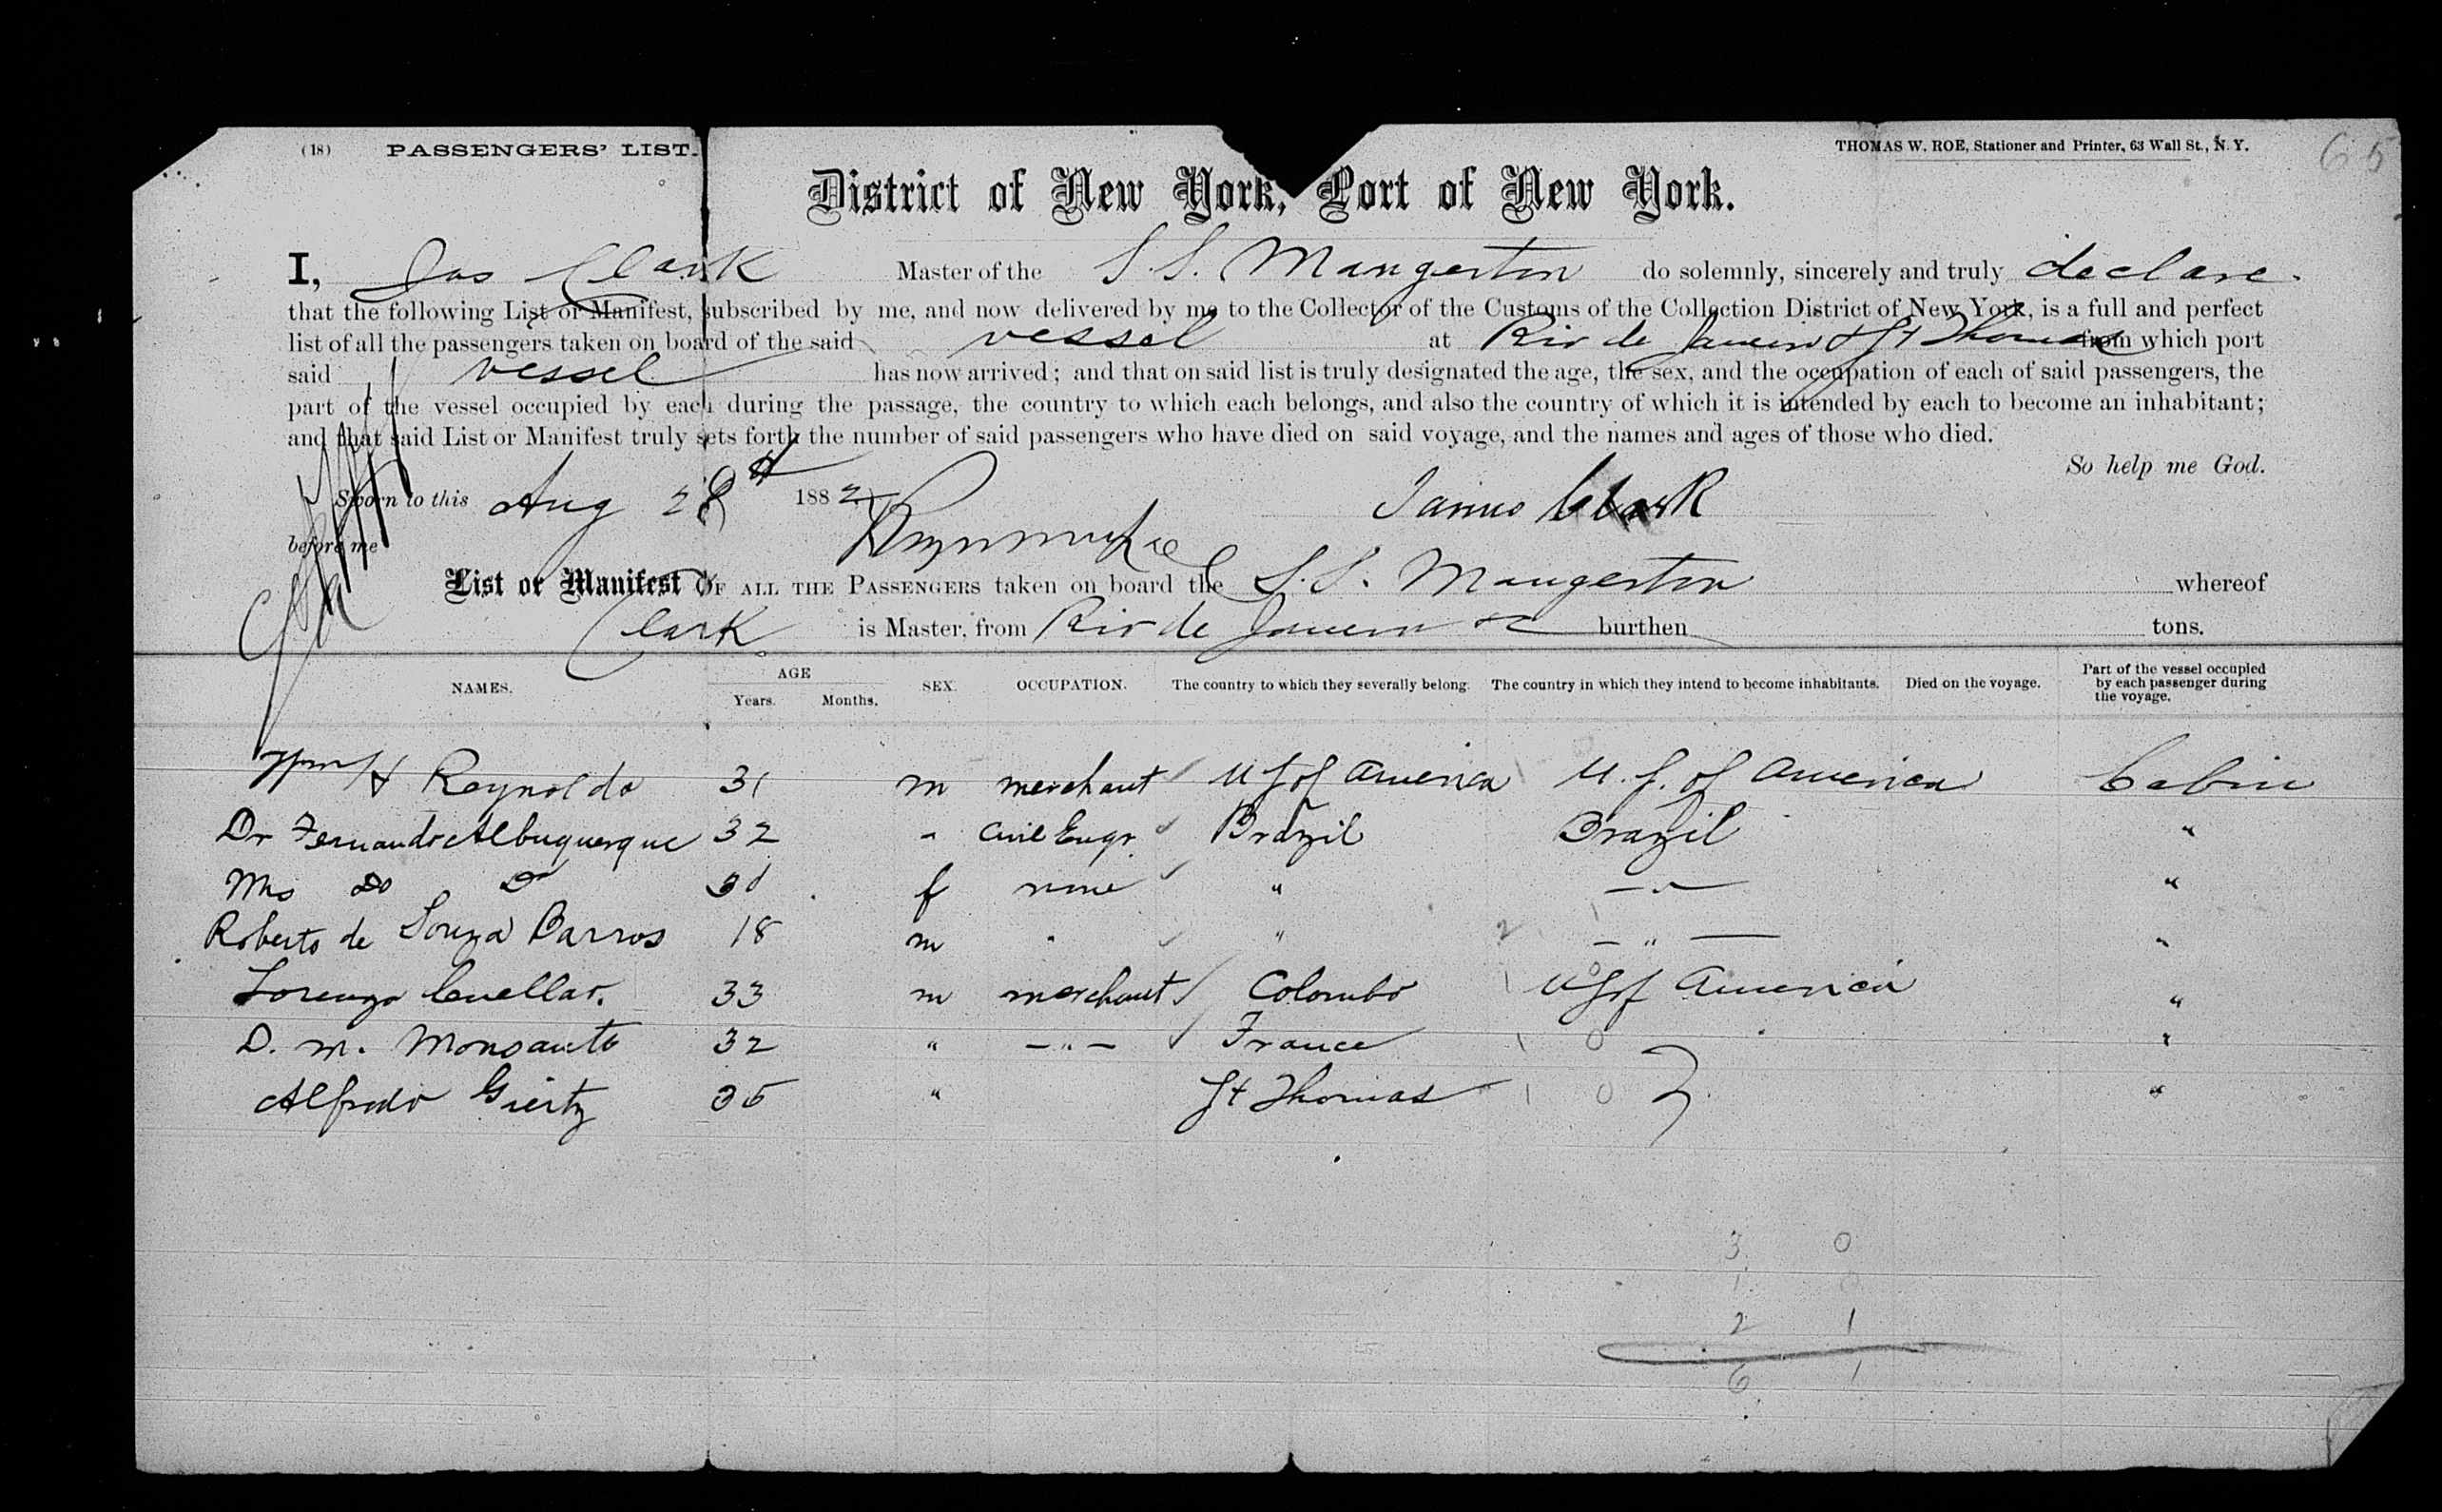 (18) PASSENGERS' LIST. THOMAS W. ROE, Stationer and Printer, 63 Wall St., N. Y. 65
District of New York, Port of New York.
I, Jas Clark Master of the S.S. Mangerton do solemnly, sincerely and truly declare
that the following List or Manifest, subscribed by me, and now delivered by me to the Collector of the Customs of the Collection District of New York, is a full and perfect
list of all the passengers taken on board of the said vessel at Rio de Janeiro & St Thomas from which port
said vessel has now arrived; and that on said list is truly designated the age, the sex, and the occupation of each of said passengers, the
part of the vessel occupied by each during the passage, the country to which each belongs, and also the country of which it is intended by each to become an inhabitant;
and that said List or Manifest truly sets forth the number of said passengers who have died on said voyage, and the names and ages of those who died.
So help me God.
Sworn to this Aug 28th 1882 James Clark
before me
List or Manifest OF ALL THE PASSENGERS taken on board the S.S. Mangerton whereof
Clark is Master, from Rio de Janeiro &c burthen tons.
NAMES. AGE Years. Months. SEX. OCCUPATION. The country to which they severally belong. The country in which they intend to become inhabitants. Died on the voyage. Part of the vessel occupied by each passenger during the voyage.
Wm H Reynolds 31 m merchant U S of America U. S. of America Cabin
Dr Fernando Albuquerque 32 " Civil Engr Brazil Brazil "
Mrs Do Do 30 f none " — " — "
Roberto de Souza Barros 18 m " " 2 1 — " — "
Lorenzo Cuellar. 33 m merchant Colombo 1 0 U S of America "
D. M. Monsanto 32 " — " — France 1 0 "
Alfredo Giertz 35 " St Thomas 1 0 "
3 0
1 0
2 1
6 1